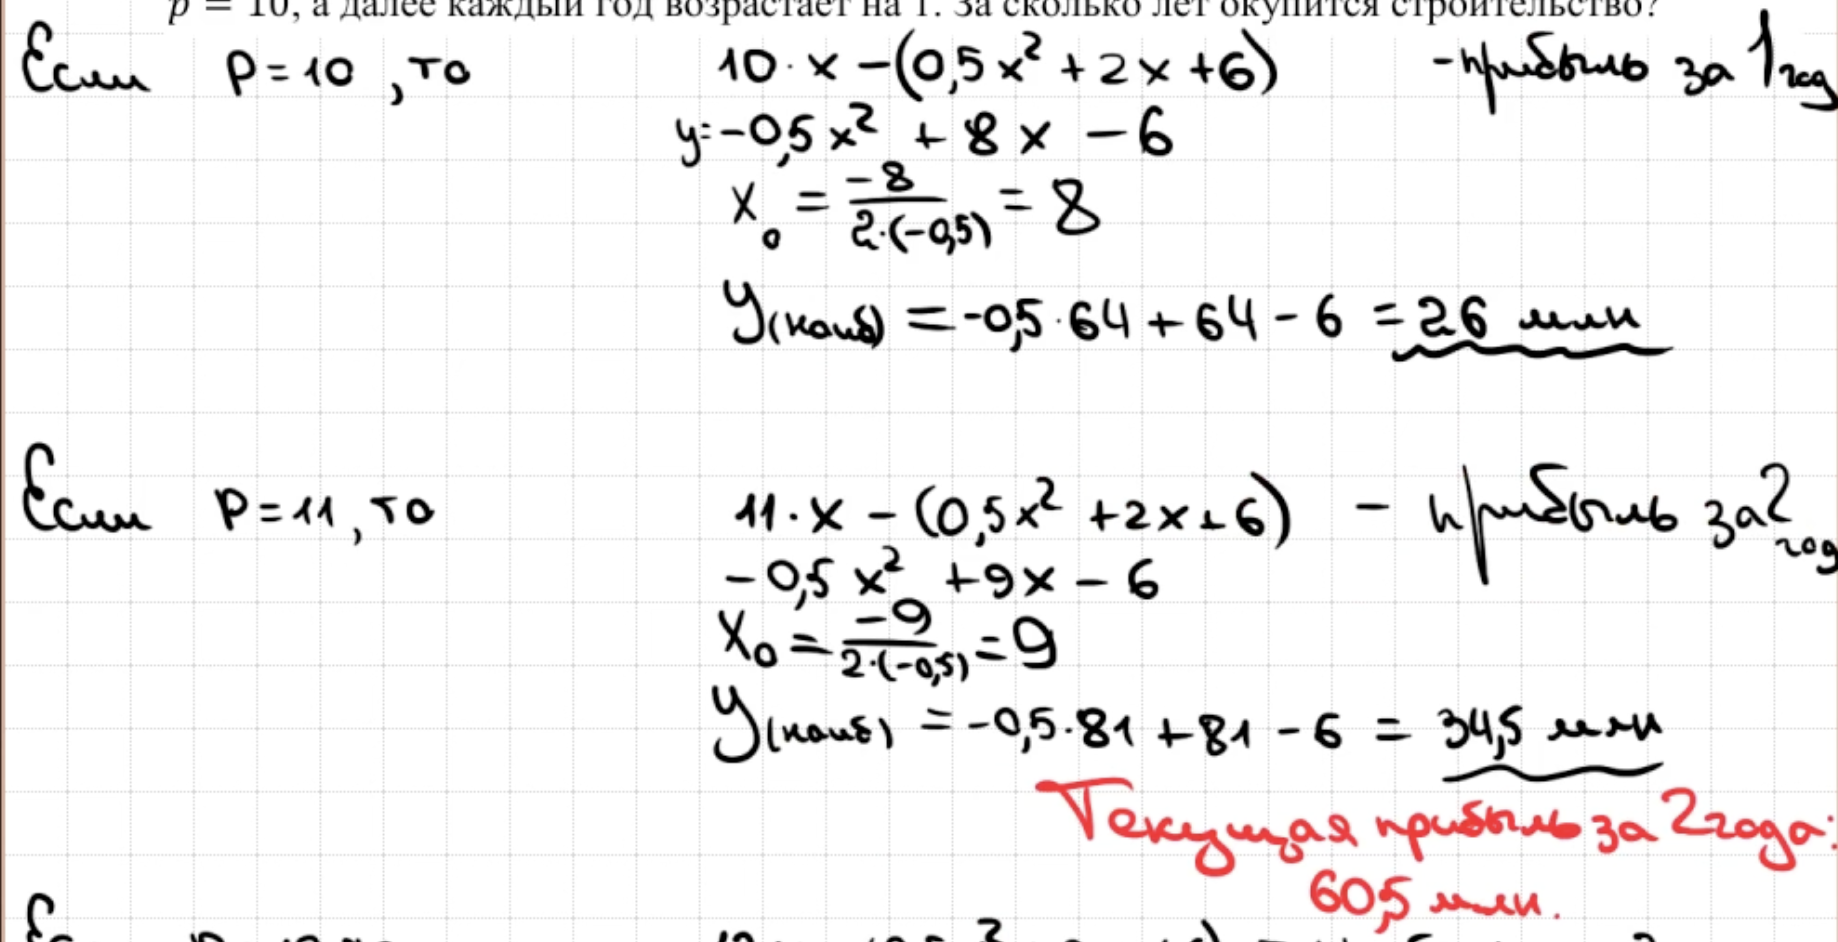 p = 10, а далее каждый год возрастает на 1. За сколько лет окупится строительство?
Если p = 10, то 10 · x − (0,5x² + 2x + 6) - прибыль за 1 год
y = −0,5x² + 8x − 6
x₀ = −8 / 2·(−0,5) = 8
y(наиб) = −0,5·64 + 64 − 6 = 26 млн
Если p = 11, то 11 · x − (0,5x² + 2x + 6) − прибыль за 2 год
−0,5x² + 9x − 6
x₀ = −9 / 2·(−0,5) = 9
y(наиб) = −0,5·81 + 81 − 6 = 34,5 млн
Текущая прибыль за 2 года:
60,5 млн.